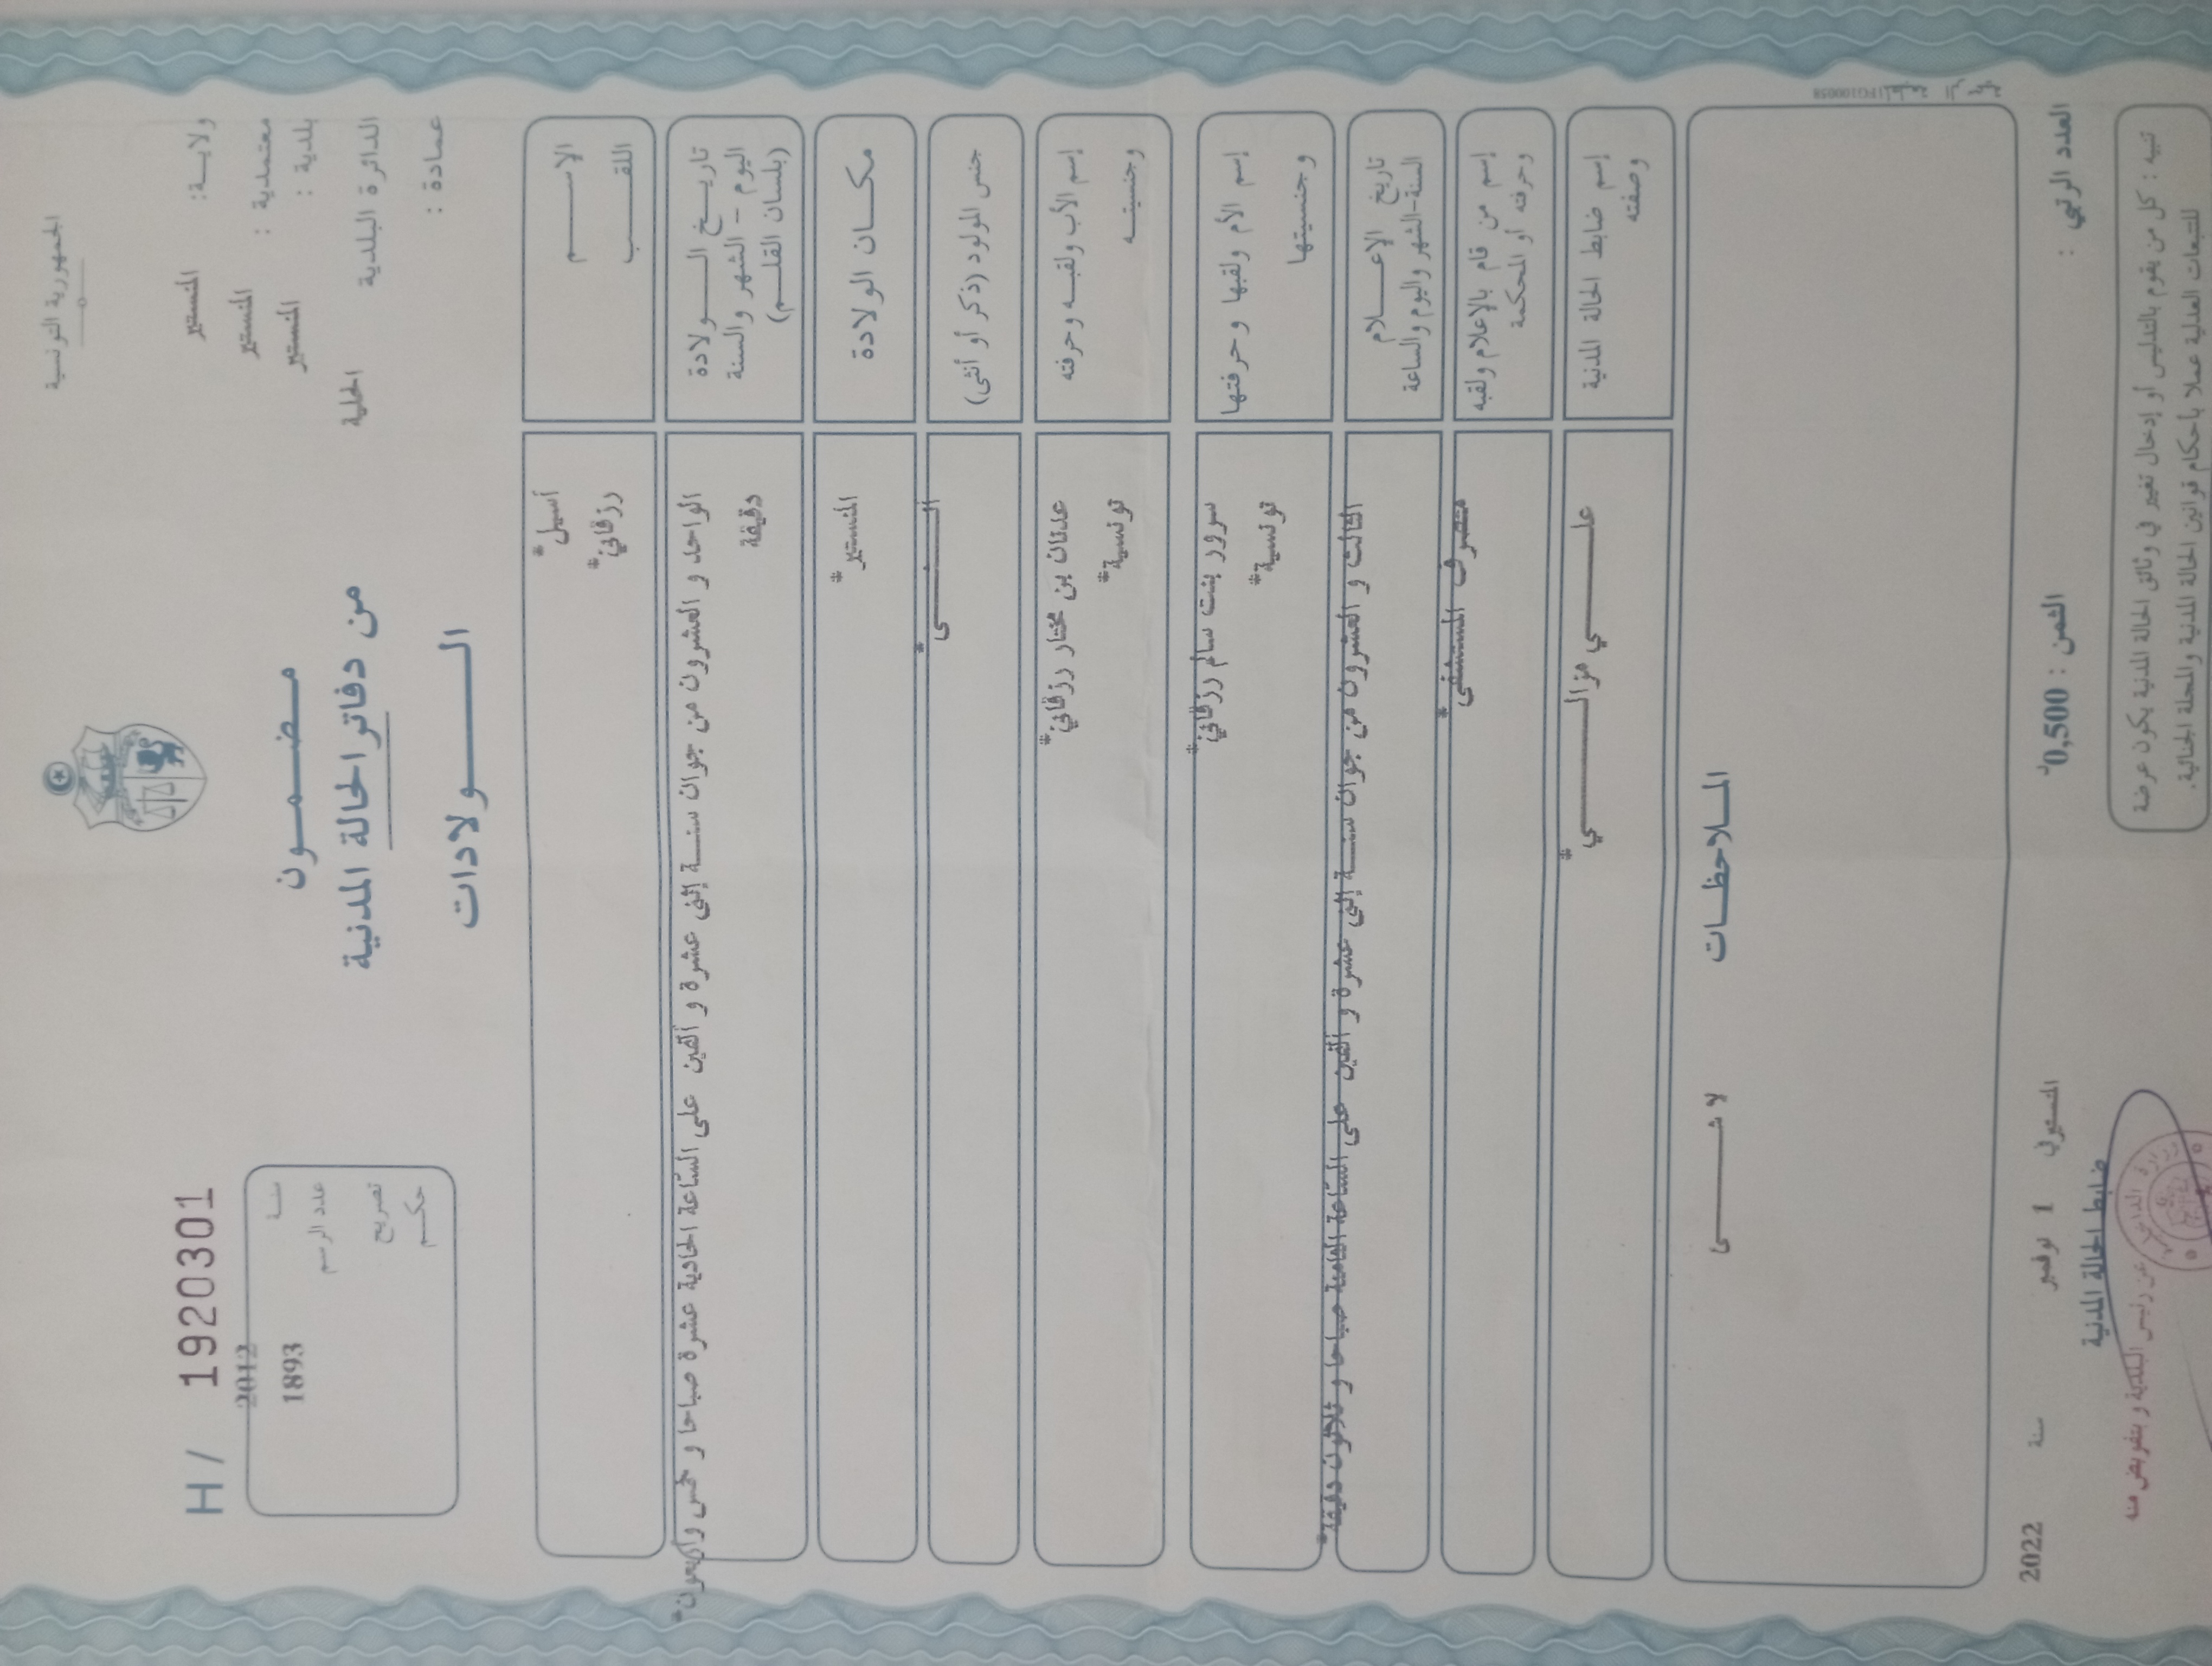 الجمهورية التونسية
ولاية: المنستير
معتمدية : المنستير
بلدية : المنستير
الدائرة البلدية المحلية
عمادة :
H / 1920301
سنة 2012
عدد الرسم 1893
تصريح
حكم
مضمون
من دفاتر الحالة المدنية
الولادات
الإسم أسيل*
اللقب رزقاني*
تاريخ الولادة الواحد و العشرون من جوان سنة إثنى عشرة و ألفين على الساعة الحادية عشرة صباحا و خمس وأربعون*
اليوم - الشهر والسنة دقيقة
(بلسان القلم)
مكان الولادة المنستير*
جنس المولود (ذكر أو أنثى)
إسم الأب ولقبه وحرفته عدنان بن مختار رزقاني*
وجنسيته تونسية*
إسم الأم ولقبها وحرفتها سرور بنت سالم رزقاني*
وجنسيتها تونسية*
تاريخ الإعلام الثالث و العشرون من جوان سنة إثنى عشرة و ألفين على الساعة الثامنة صباحا و ثلاثون دقيقة*
السنة-الشهر واليوم والساعة
إسم من قام بالإعلام ولقبه متصرف المستشفى*
وحرفته أو المحكمة
إسم ضابط الحالة المدنية علي مزالي*
وصفته
الملاحظات
لا شى
العدد الرتبي :
الثمن : 0,500د
المنستير في 1 نوفمبر سنة 2022
ضابط الحالة المدنية
عن رئيس البلدية و بتفويض منه
تنبيه : كل من يقوم بالتدليس أو إدخال تغيير في وثائق الحالة المدنية يكون عرضة
للتتبعات العدلية عملا بأحكام قوانين الحالة المدنية والمجلة الجنائية.